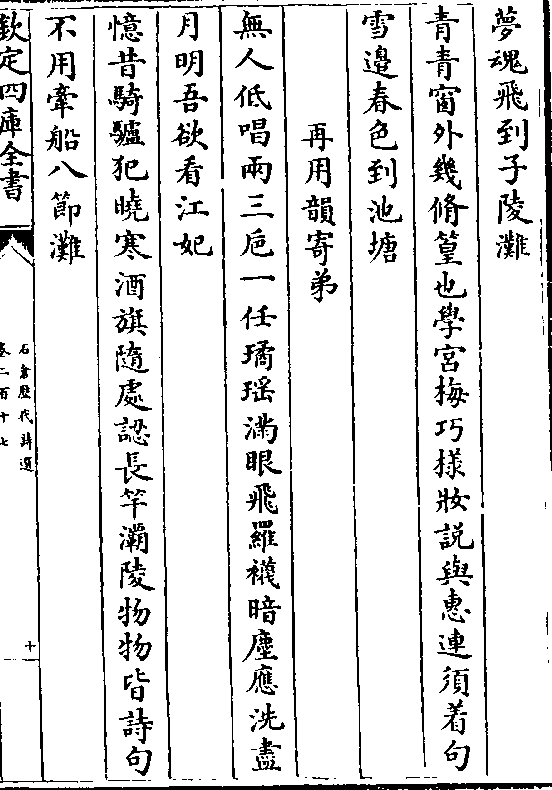 夢魂飛到子陵灘
青青窗外幾脩篁也學宮梅巧様妝説與惠連須着句
雪邉春色到池塘
再用韻寄弟
無人低唱兩三巵一任璚瑶滿眼飛羅襪暗塵應洗盡
月明吾欲看江妃
憶昔騎驢犯曉寒酒旗隨處認長竿灞陵物物皆詩句
不用牽船八節灘
欽定四庫全書
石倉歴代詩選
卷二百十七
十